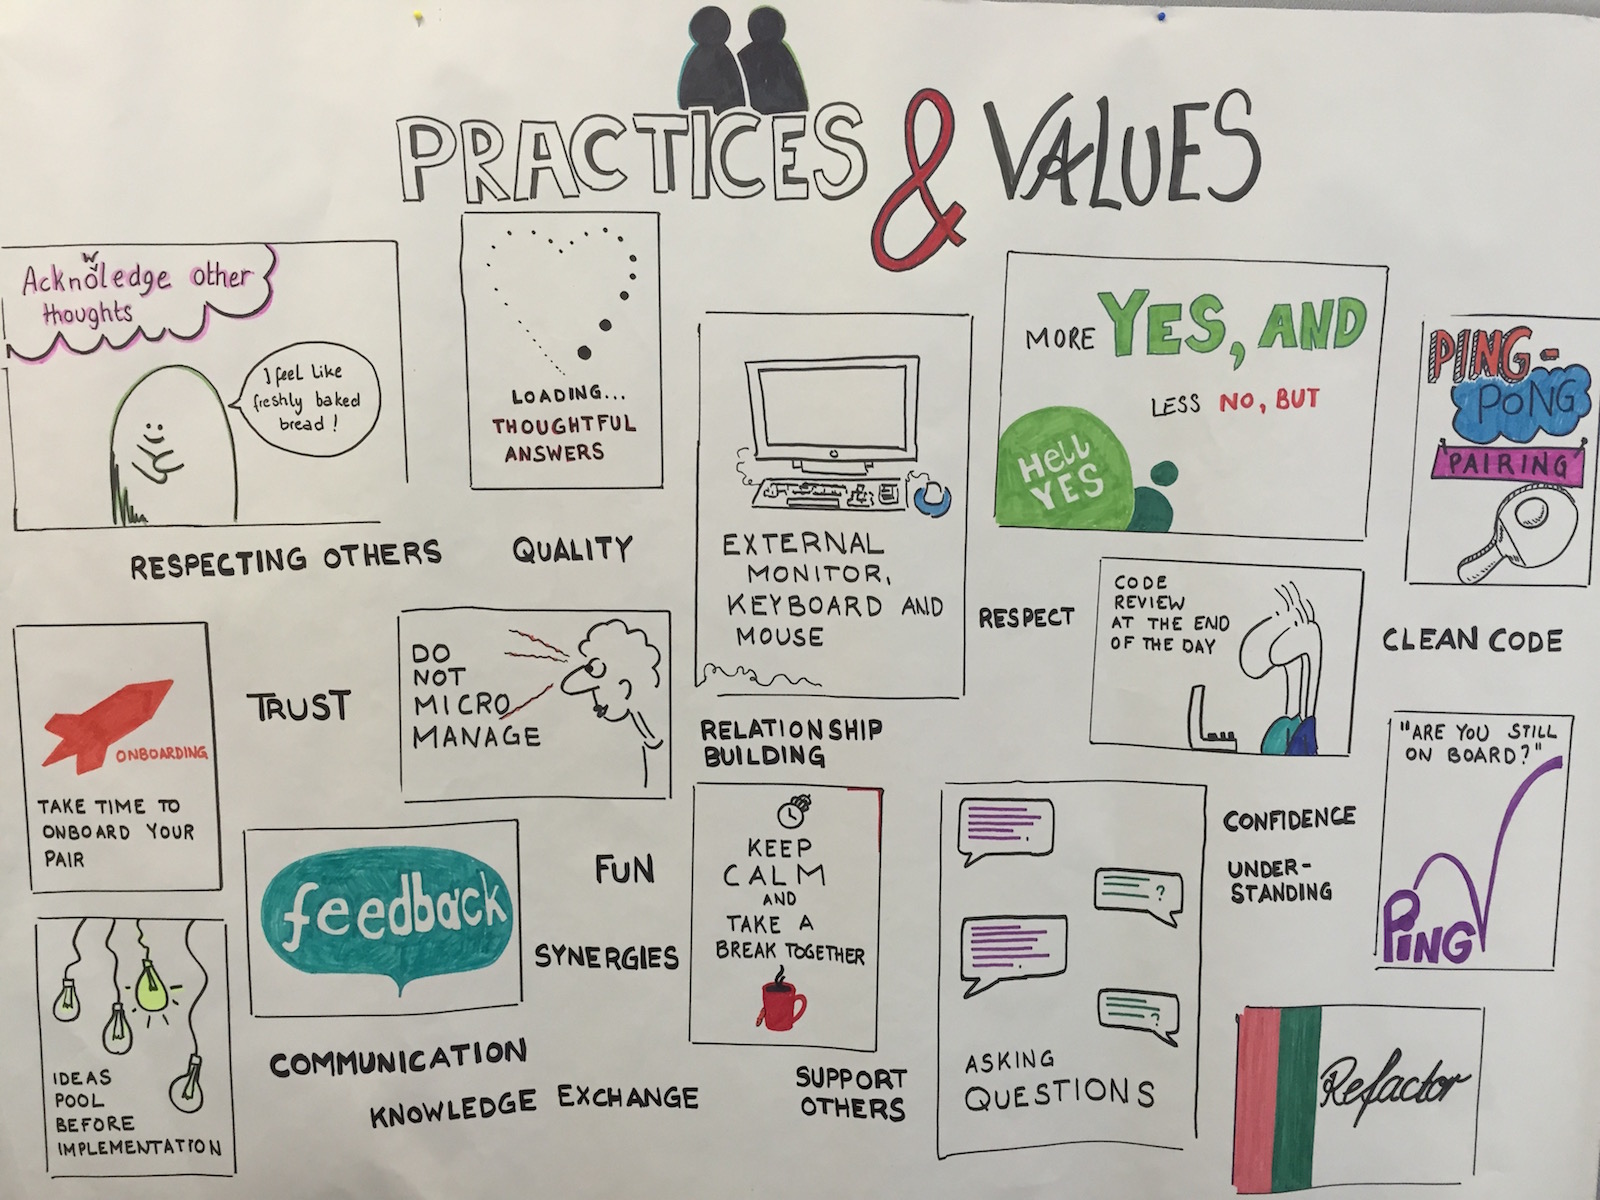 PRACTICES & VALUES
Acknwoledge other
thoughts
I feel like
freshly baked
bread!
LOADING...
THOUGHTFUL
ANSWERS
EXTERNAL
MONITOR,
KEYBOARD AND
MOUSE
MORE YES, AND
LESS NO, BUT
Hell
YES
PING-
PONG
PAIRING
RESPECTING OTHERS
QUALITY
RESPECT
CODE
REVIEW
AT THE END
OF THE DAY
CLEAN CODE
ONBOARDING
TAKE TIME TO
ONBOARD YOUR
PAIR
TRUST
DO
NOT
MICRO
MANAGE
RELATIONSHIP
BUILDING
"ARE YOU STILL
ON BOARD?"
PING
feedback
FUN
SYNERGIES
KEEP
CALM
AND
TAKE A
BREAK TOGETHER
?
?
ASKING
QUESTIONS
CONFIDENCE
UNDER-
STANDING
IDEAS
POOL
BEFORE
IMPLEMENTATION
COMMUNICATION
KNOWLEDGE EXCHANGE
SUPPORT
OTHERS
Refactor